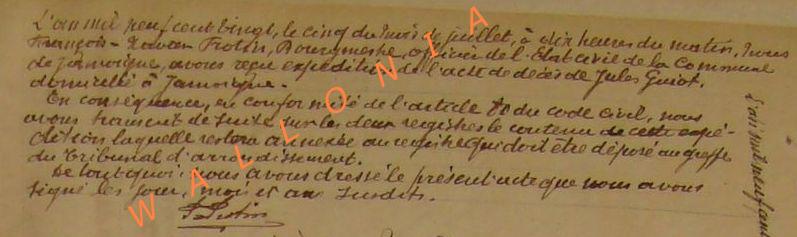 L'an mil neuf cent vingt, le cinq du mois de juillet, à dix heures du matin, Nous
François-Xavier Protin, Bourgmestre, officier de l'Etat civil de la Commune
de Jamoigne, avons reçu expédition de l'acte de décès de Jules Guiot,
domicilié à Jamoigne.
En conséquence, en conformité de l'article du code civil, nous
avons transcrit de suite sur les deux registres le contenu de cette expé-
dition laquelle restera annexée au registre qui doit être déposé au greffe
du Tribunal d'arrondissement.
De tout quoi nous avons dressé le présent acte que nous avons
signé les jour, mois et an susdits.
WALLONIA
L'an mil neuf cent